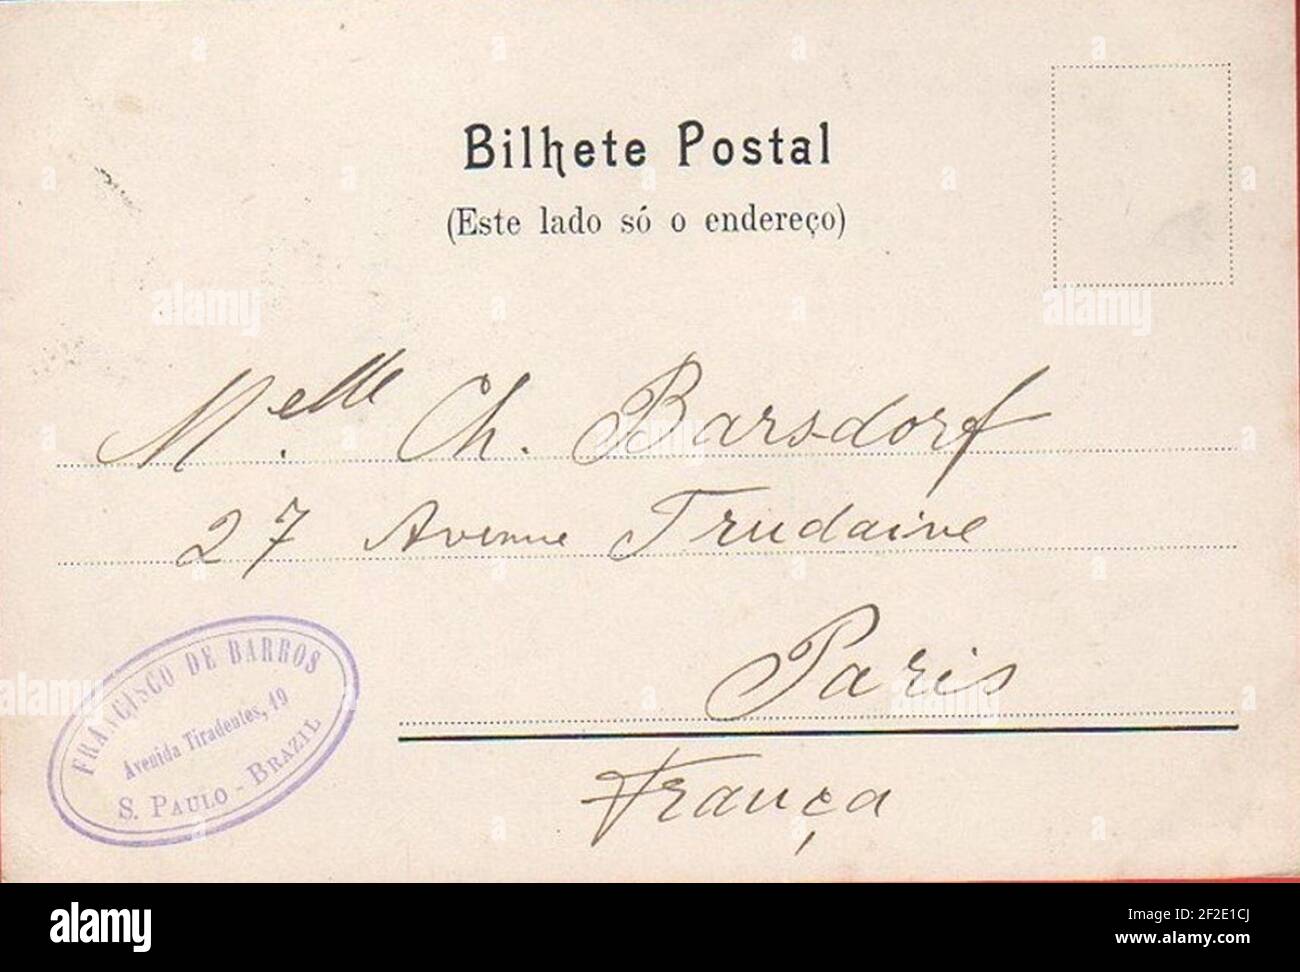 Bilhete Postal
(Este lado só o endereço)
M.elle Ch. Barsdorf
27 Avenue Trudaine
Paris
França
FRANCISCO DE BARROS
Avenida Tiradentes, 19
S. PAULO - BRAZIL
alamy
Image ID: 2F2E1CJ
www.alamy.com